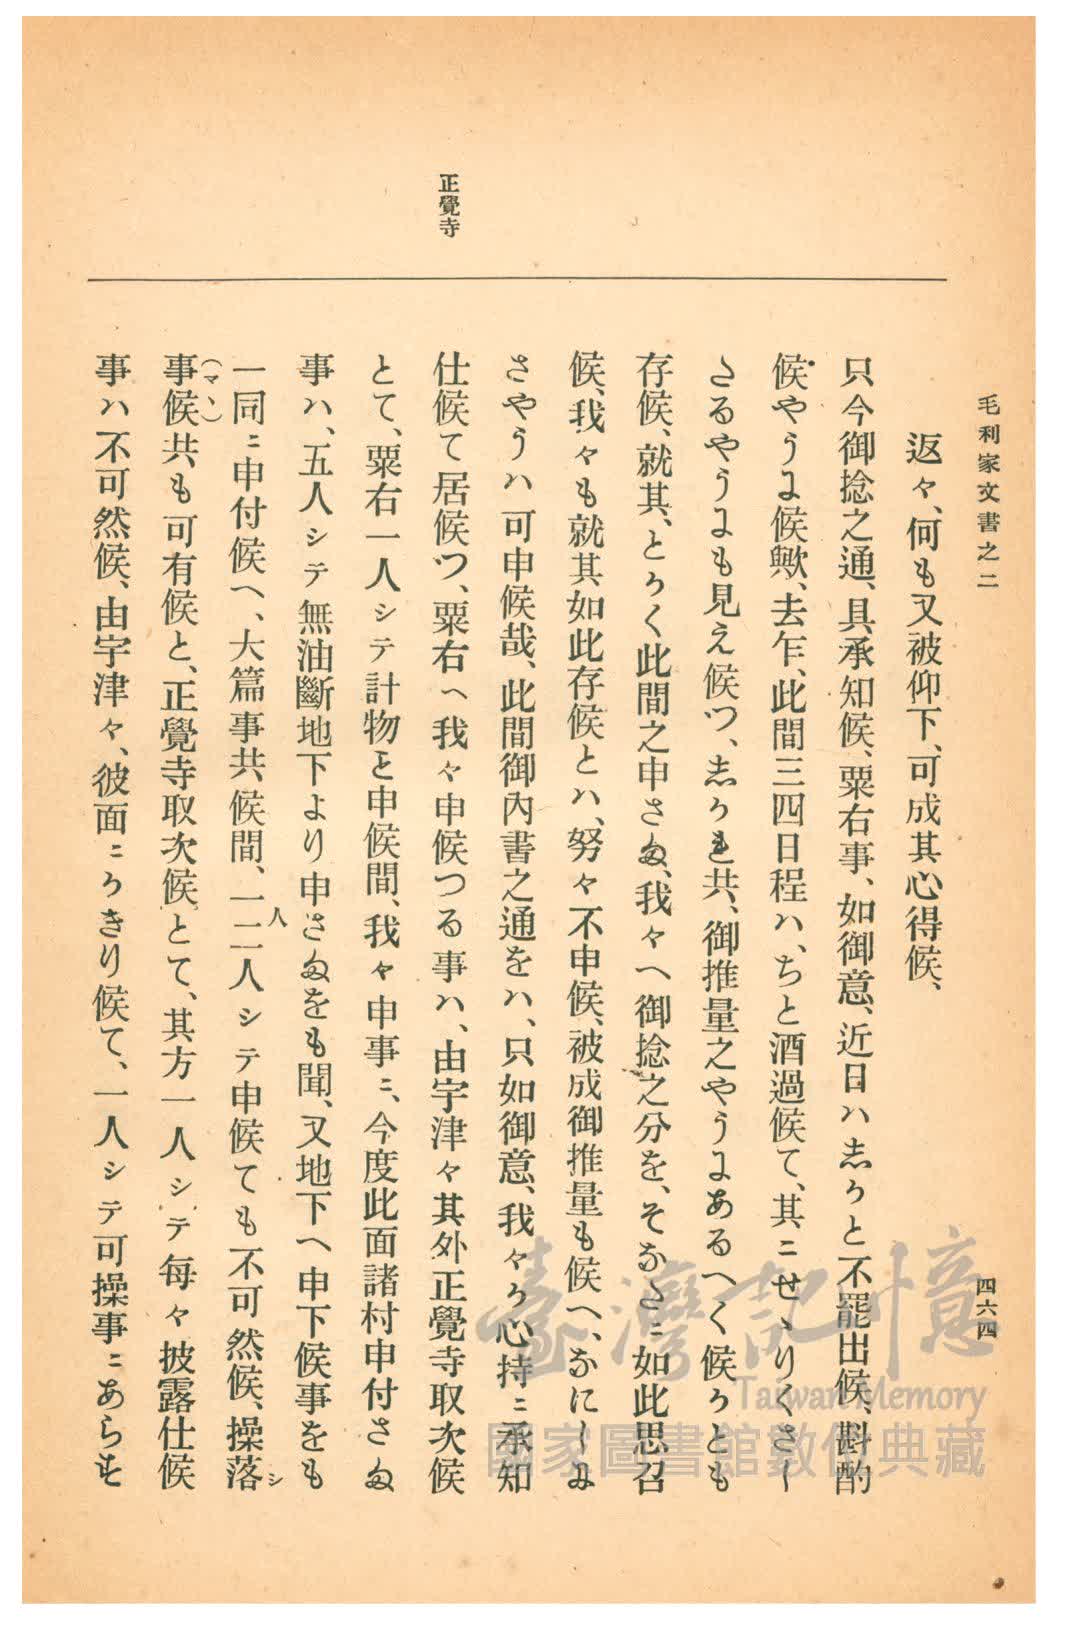 毛利家文書之二
四六四
正覺寺
返々、何も又被仰下、可成其心得候、
只今御捻之通、具承知候、粟右事、如御意、近日ハ志かと不罷出候、斟酌
候やうに候歟、去乍、此間三四日程ハ、ちと酒過候て、其ニせゝりくさし
たるやうにも見え候つ、志かれ共、御推量之やうにあるへく候かとも
存候、就其、とかく此間之申さま、我々へ御捻之分を、そなたニ如此思召
候、我々も就其如此存候とハ、努々不申候、被成御推量も候へ、なにしに
さやうハ可申候哉、此間御內書之通をハ、只如御意、我々か心持ニ承知
仕候て居候つ、粟右へ我々申候つる事ハ、由宇津々其外正覺寺取次候
とて、粟右一人シテ計物を申候間、我々申事ニ、今度此面諸村申付さま
事ハ、五人シテ無油斷地下より申さまをも聞、又地下へ申下候事をも
一同ニ申付候へ、大篇事共候間、一二人シテ申候ても不可然候、操落
人
シ
事候共も可有候と、正覺寺取次候とて、其方一人シテ每々披露仕候
（マヽ）
事ハ不可然候、由宇津々、彼面ニかきり候て、一人シテ可操事ニあらす
臺灣記憶
Taiwan Memory
國家圖書館數位典藏